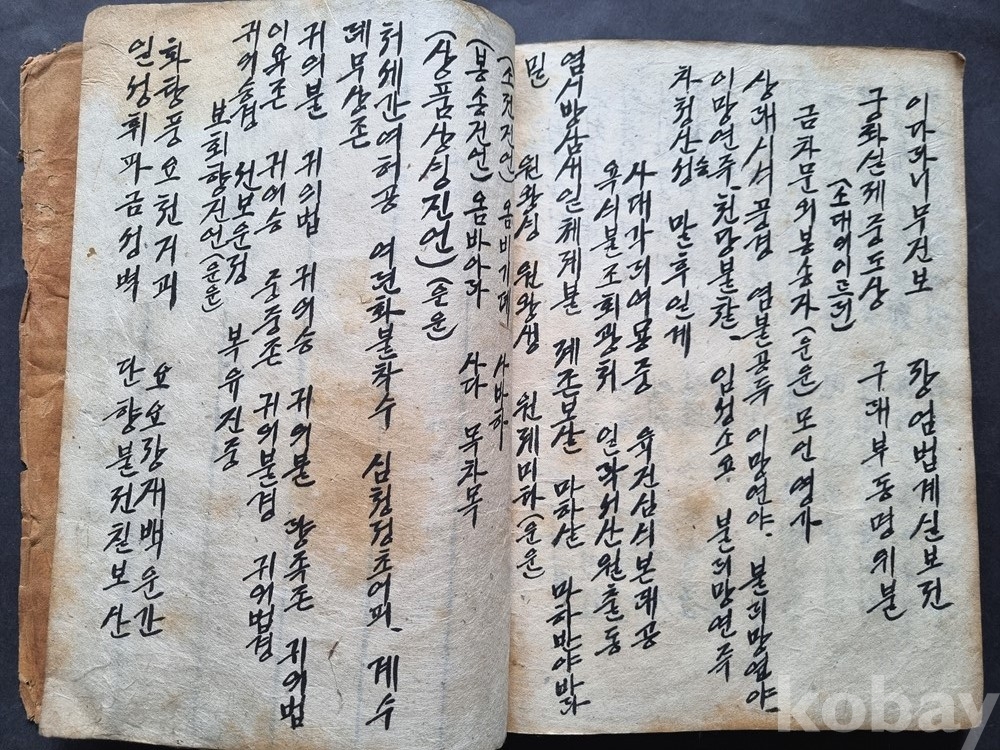 이다라니무진보 장엄법계실보전
궁좌실제중도상 구래부동명위불
(소대의이르러)
금차문외봉송자 (운운) 모인 영가
상래시식풍경 염불공두 이망연야. 불리망연야.
이망연주. 천당불찰. 임성소요 불리망연주
차청산승 만후일게
사대각리여몽중 육진심식본래공
욕식불조회광처 일락서산월출동
염시방삼세일체제불 제존보살 마하살 마하반야바라
밀 원왕생 원왕생 원재미타 (운운
(소전진언) 옴비기레 사바하
(봉송진언) 옴바아라 사다 목차목
(상품상생진언) (운운
처세간여허공 여련화불착수 심청정초어피. 계수
례무상존
귀의불 귀의법 귀의승 귀의불 량족존 귀의법
이욕존 귀의승 중중존 귀의불경 귀의법경
귀의승경 선보운정 부유진중
보회향진언 (운운
화탕풍요천거괴 요요장재백운간
일성휘파금성벽 단향불전칠보산
kobay